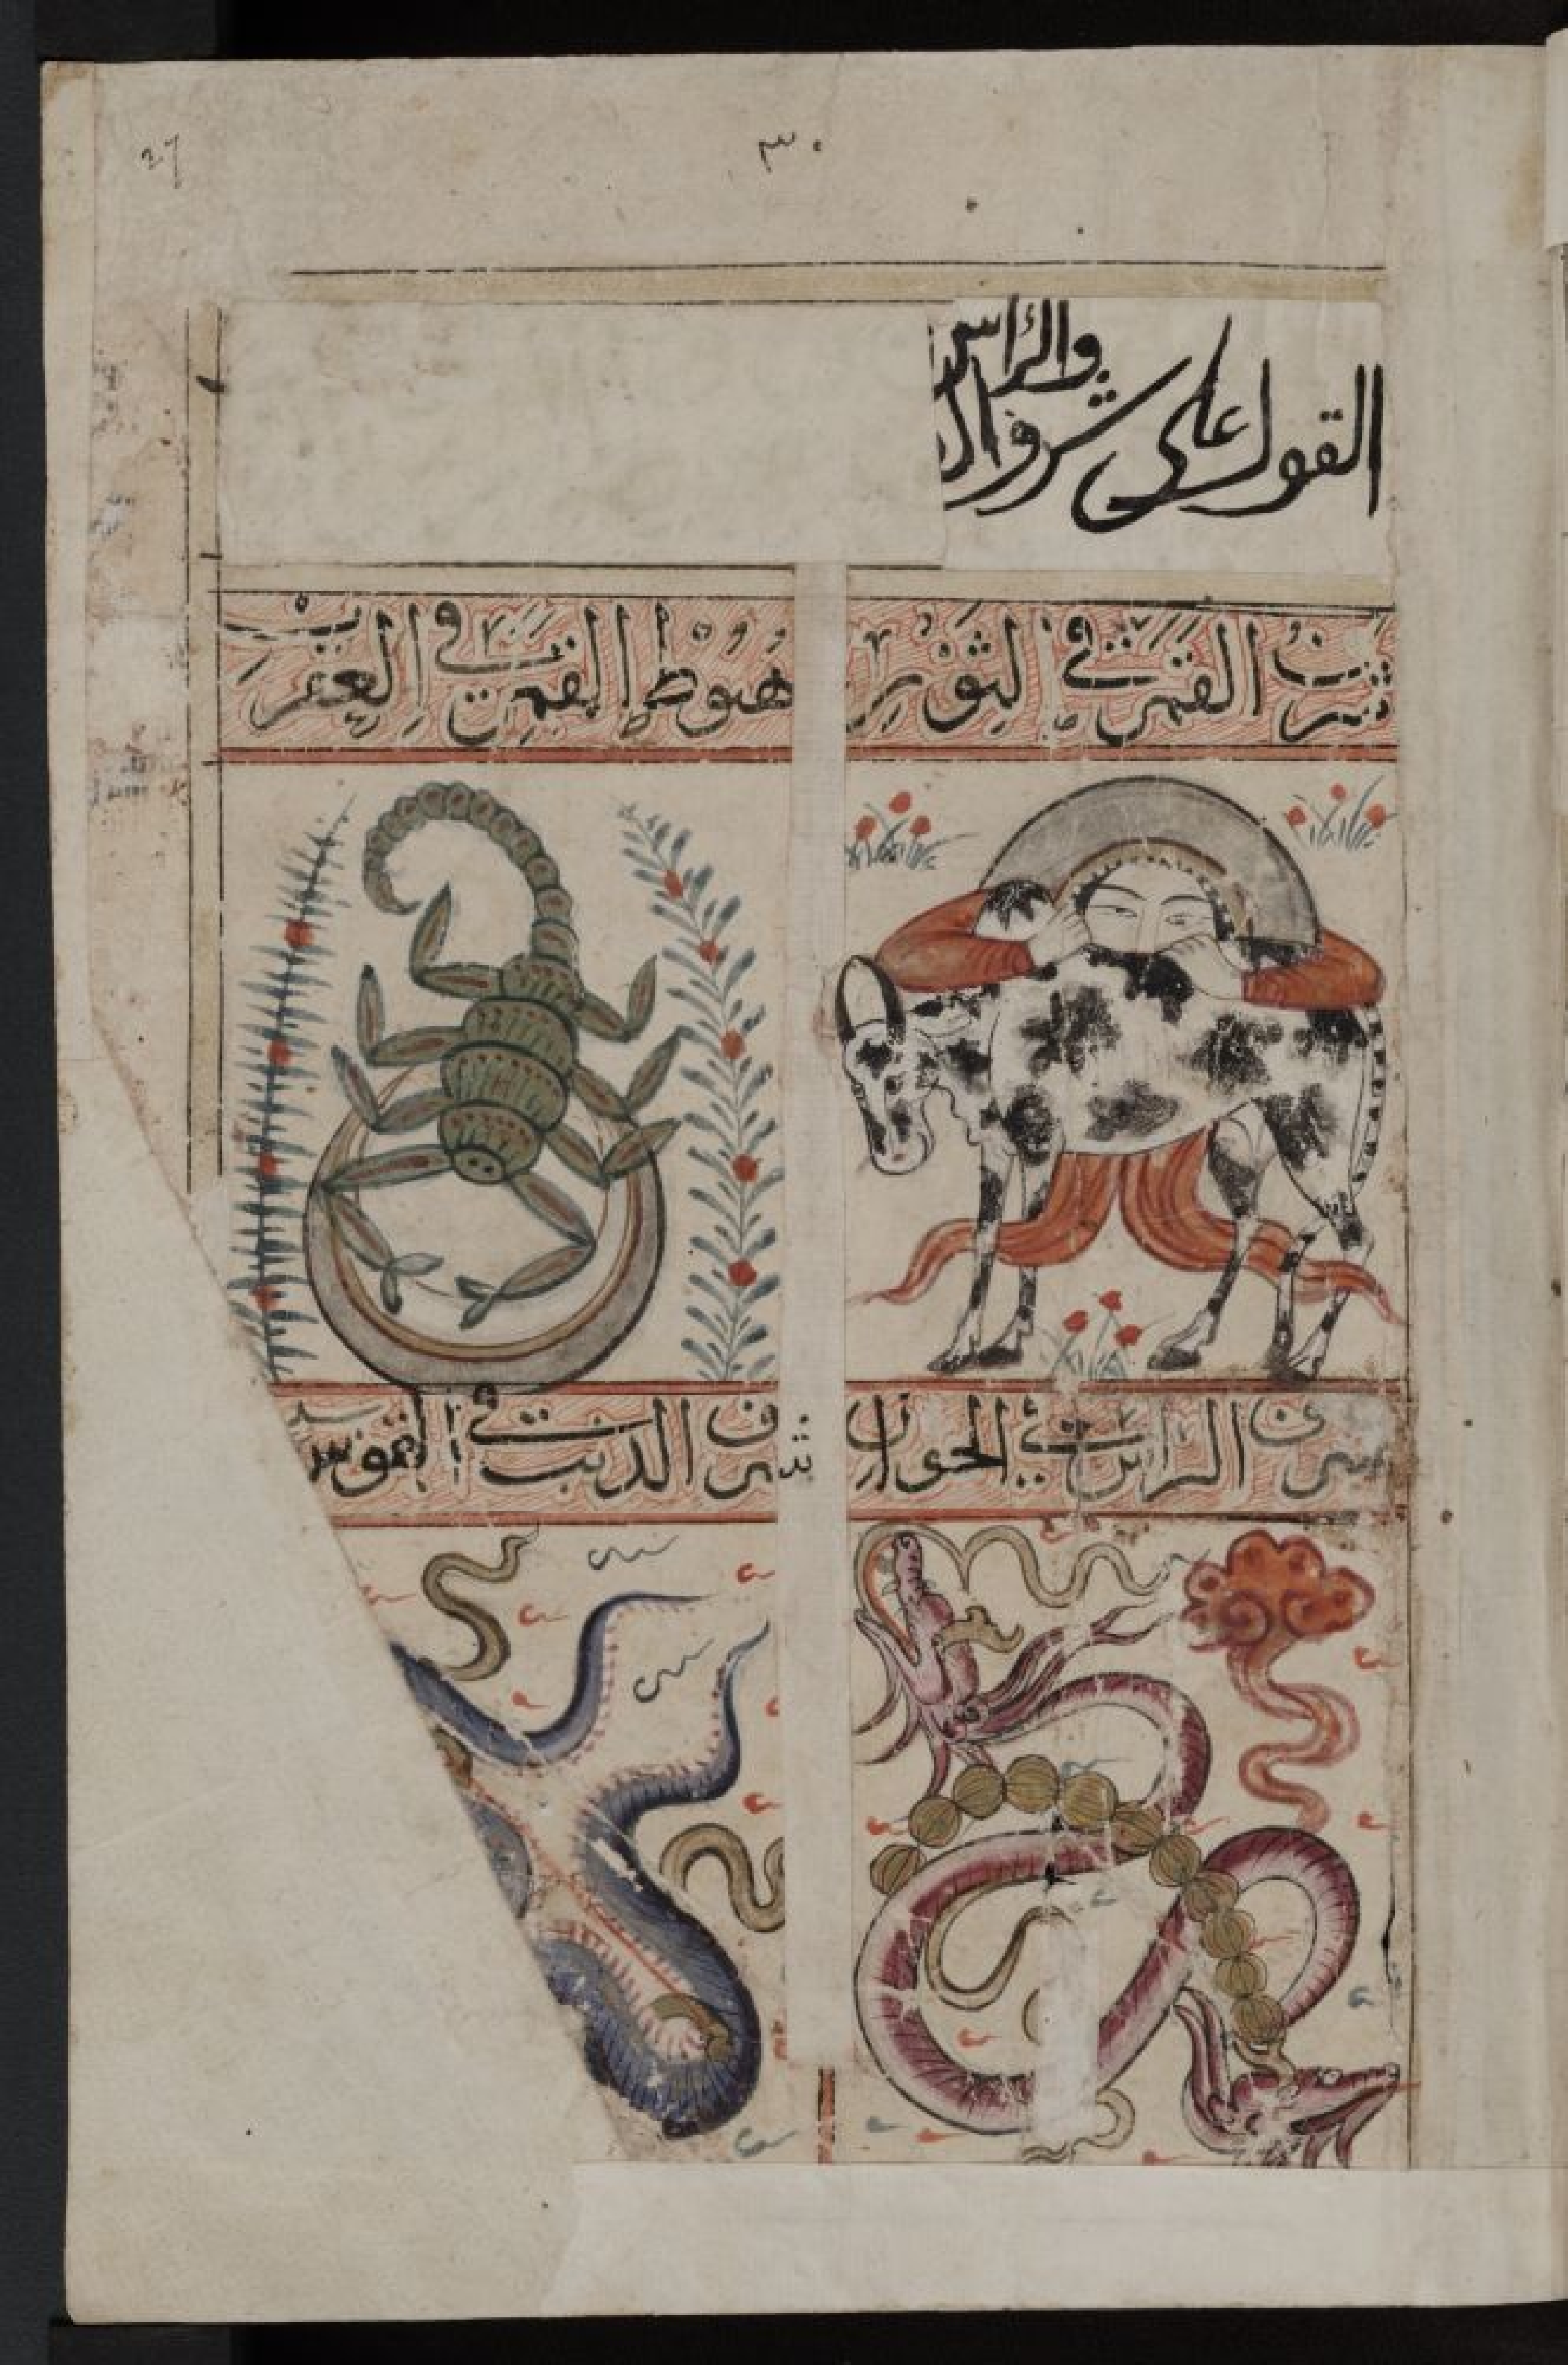 27
٣٠
والراس
القول على شرف ال
شرف القمر في الثور
هبوط القمر في العقرب
شرف الراس في الجوزا
شرف الذنب في القوس